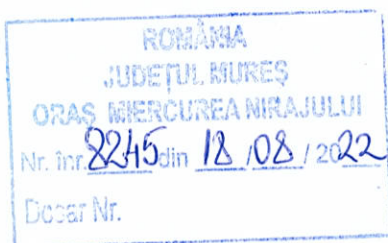 ROMÂNIA
JUDEȚUL MUREȘ
ORAȘ MIERCUREA NIRAJULUI
Nr. înr. 8245 din 18 / 08 / 2022
Dosar Nr.